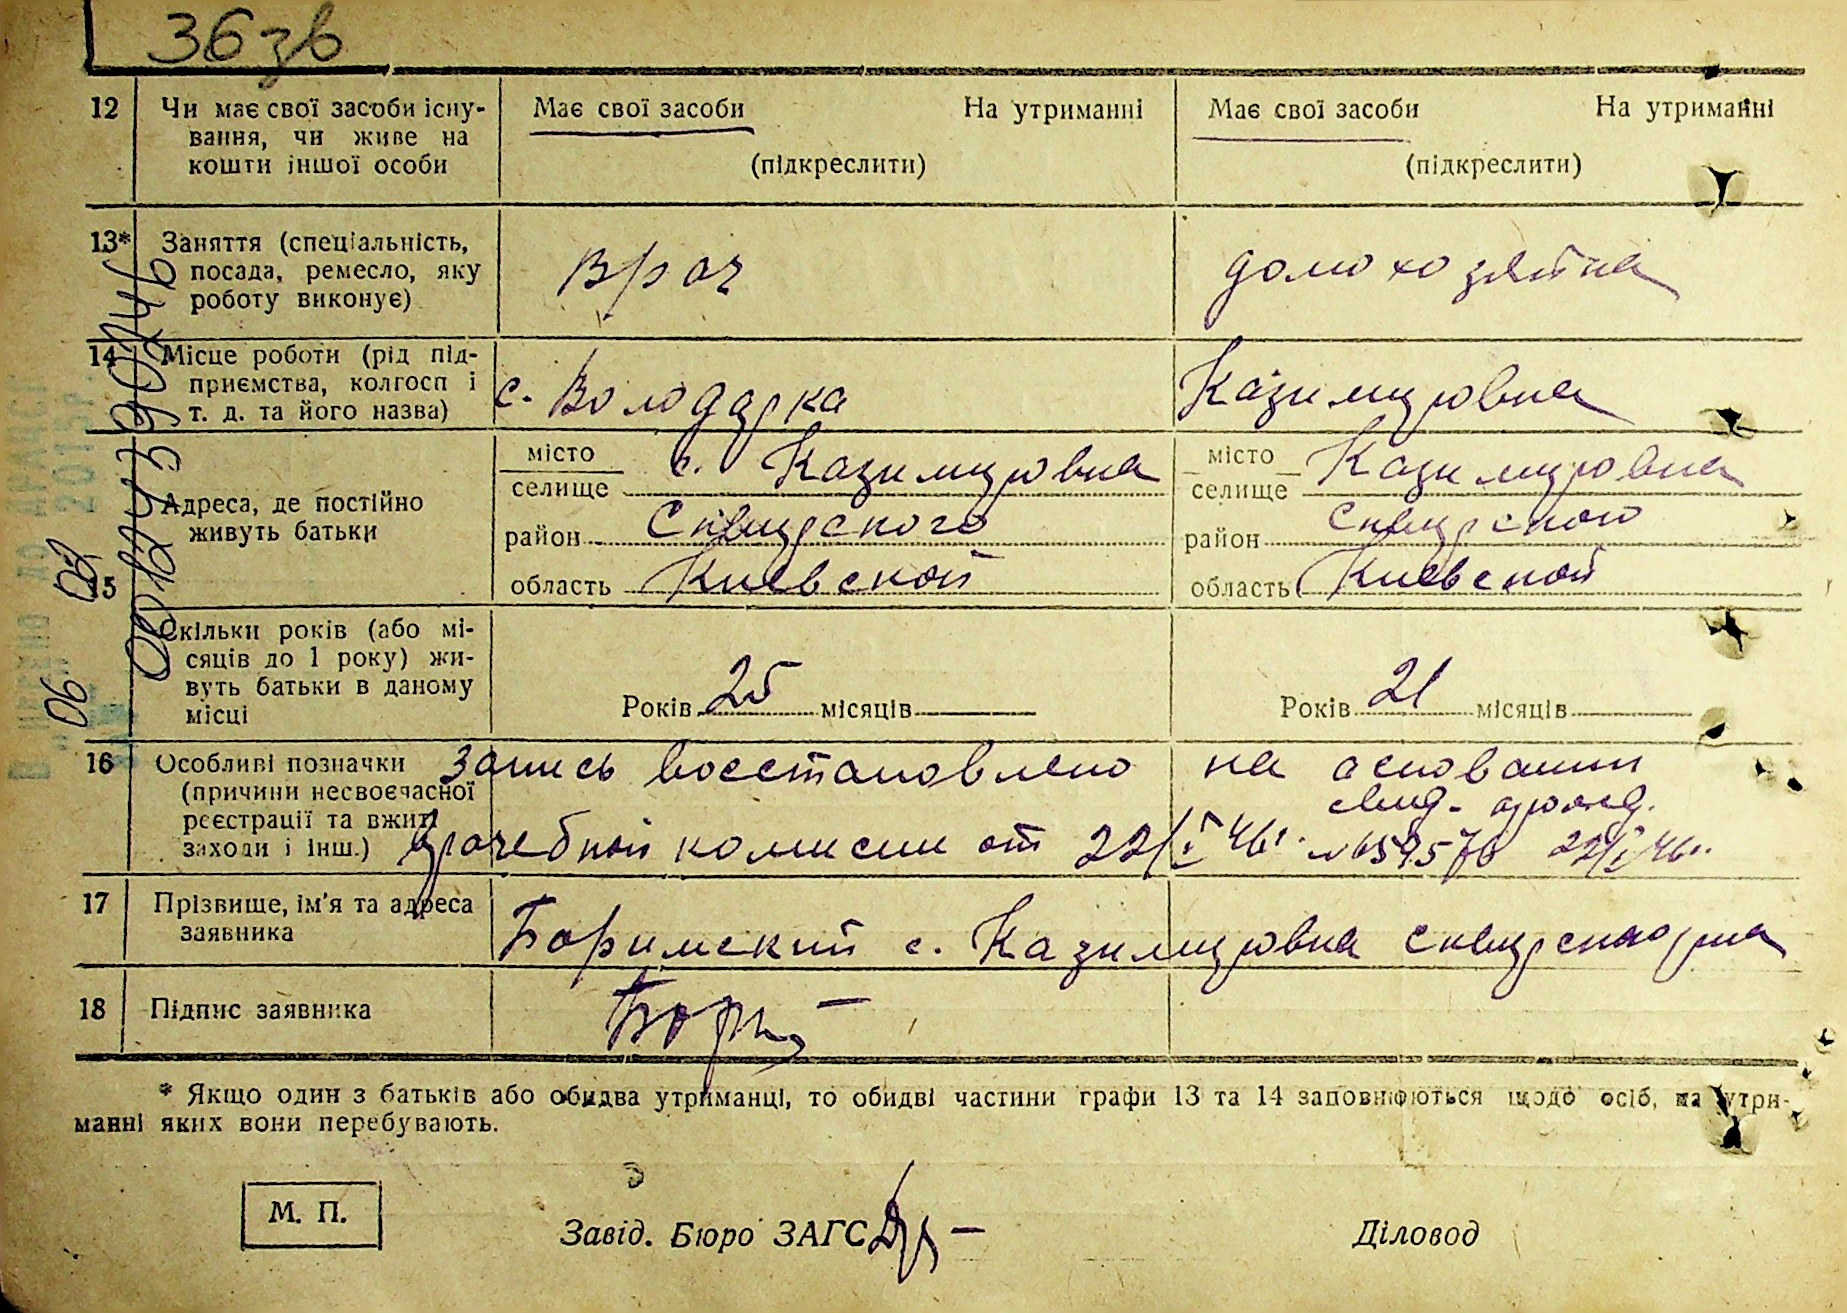 36 зв
12 Чи має свої засоби існу-
вання, чи живе на
кошти іншої особи
Має свої засоби На утриманні
(підкреслити)
Має свої засоби На утриманні
(підкреслити)
13* Заняття (спеціальність,
посада, ремесло, яку
роботу виконує)
Врач
домохозяйка
14 Місце роботи (рід під-
приємства, колгосп і
т. д. та його назва)
с. Володарка
Казимировка
15 Адреса, де постійно
живуть батьки
місто
селище с. Казимировка
район Сквирского
область Киевской
місто
селище Казимировка
район Сквирского
область Киевской
Скільки років (або мі-
сяців до 1 року) жи-
вуть батьки в даному
місці
Років 25 місяців
Років 21 місяців
16 Особливі позначки
(причини несвоєчасної
реєстрації та вжиті
заходи і інш.)
Запись восстановлено на основании
врачебной комисии от 22/
17 Прізвище, ім'я та адреса
заявника
Боримский с. Казимировка
18 Підпис заявника
* Якщо один з батьків або обидва утриманці, то обидві частини графи 13 та 14 заповнюються щодо осіб, на утри-
манні яких вони перебувають.
М. П.
Завід. Бюро ЗАГС
Діловод